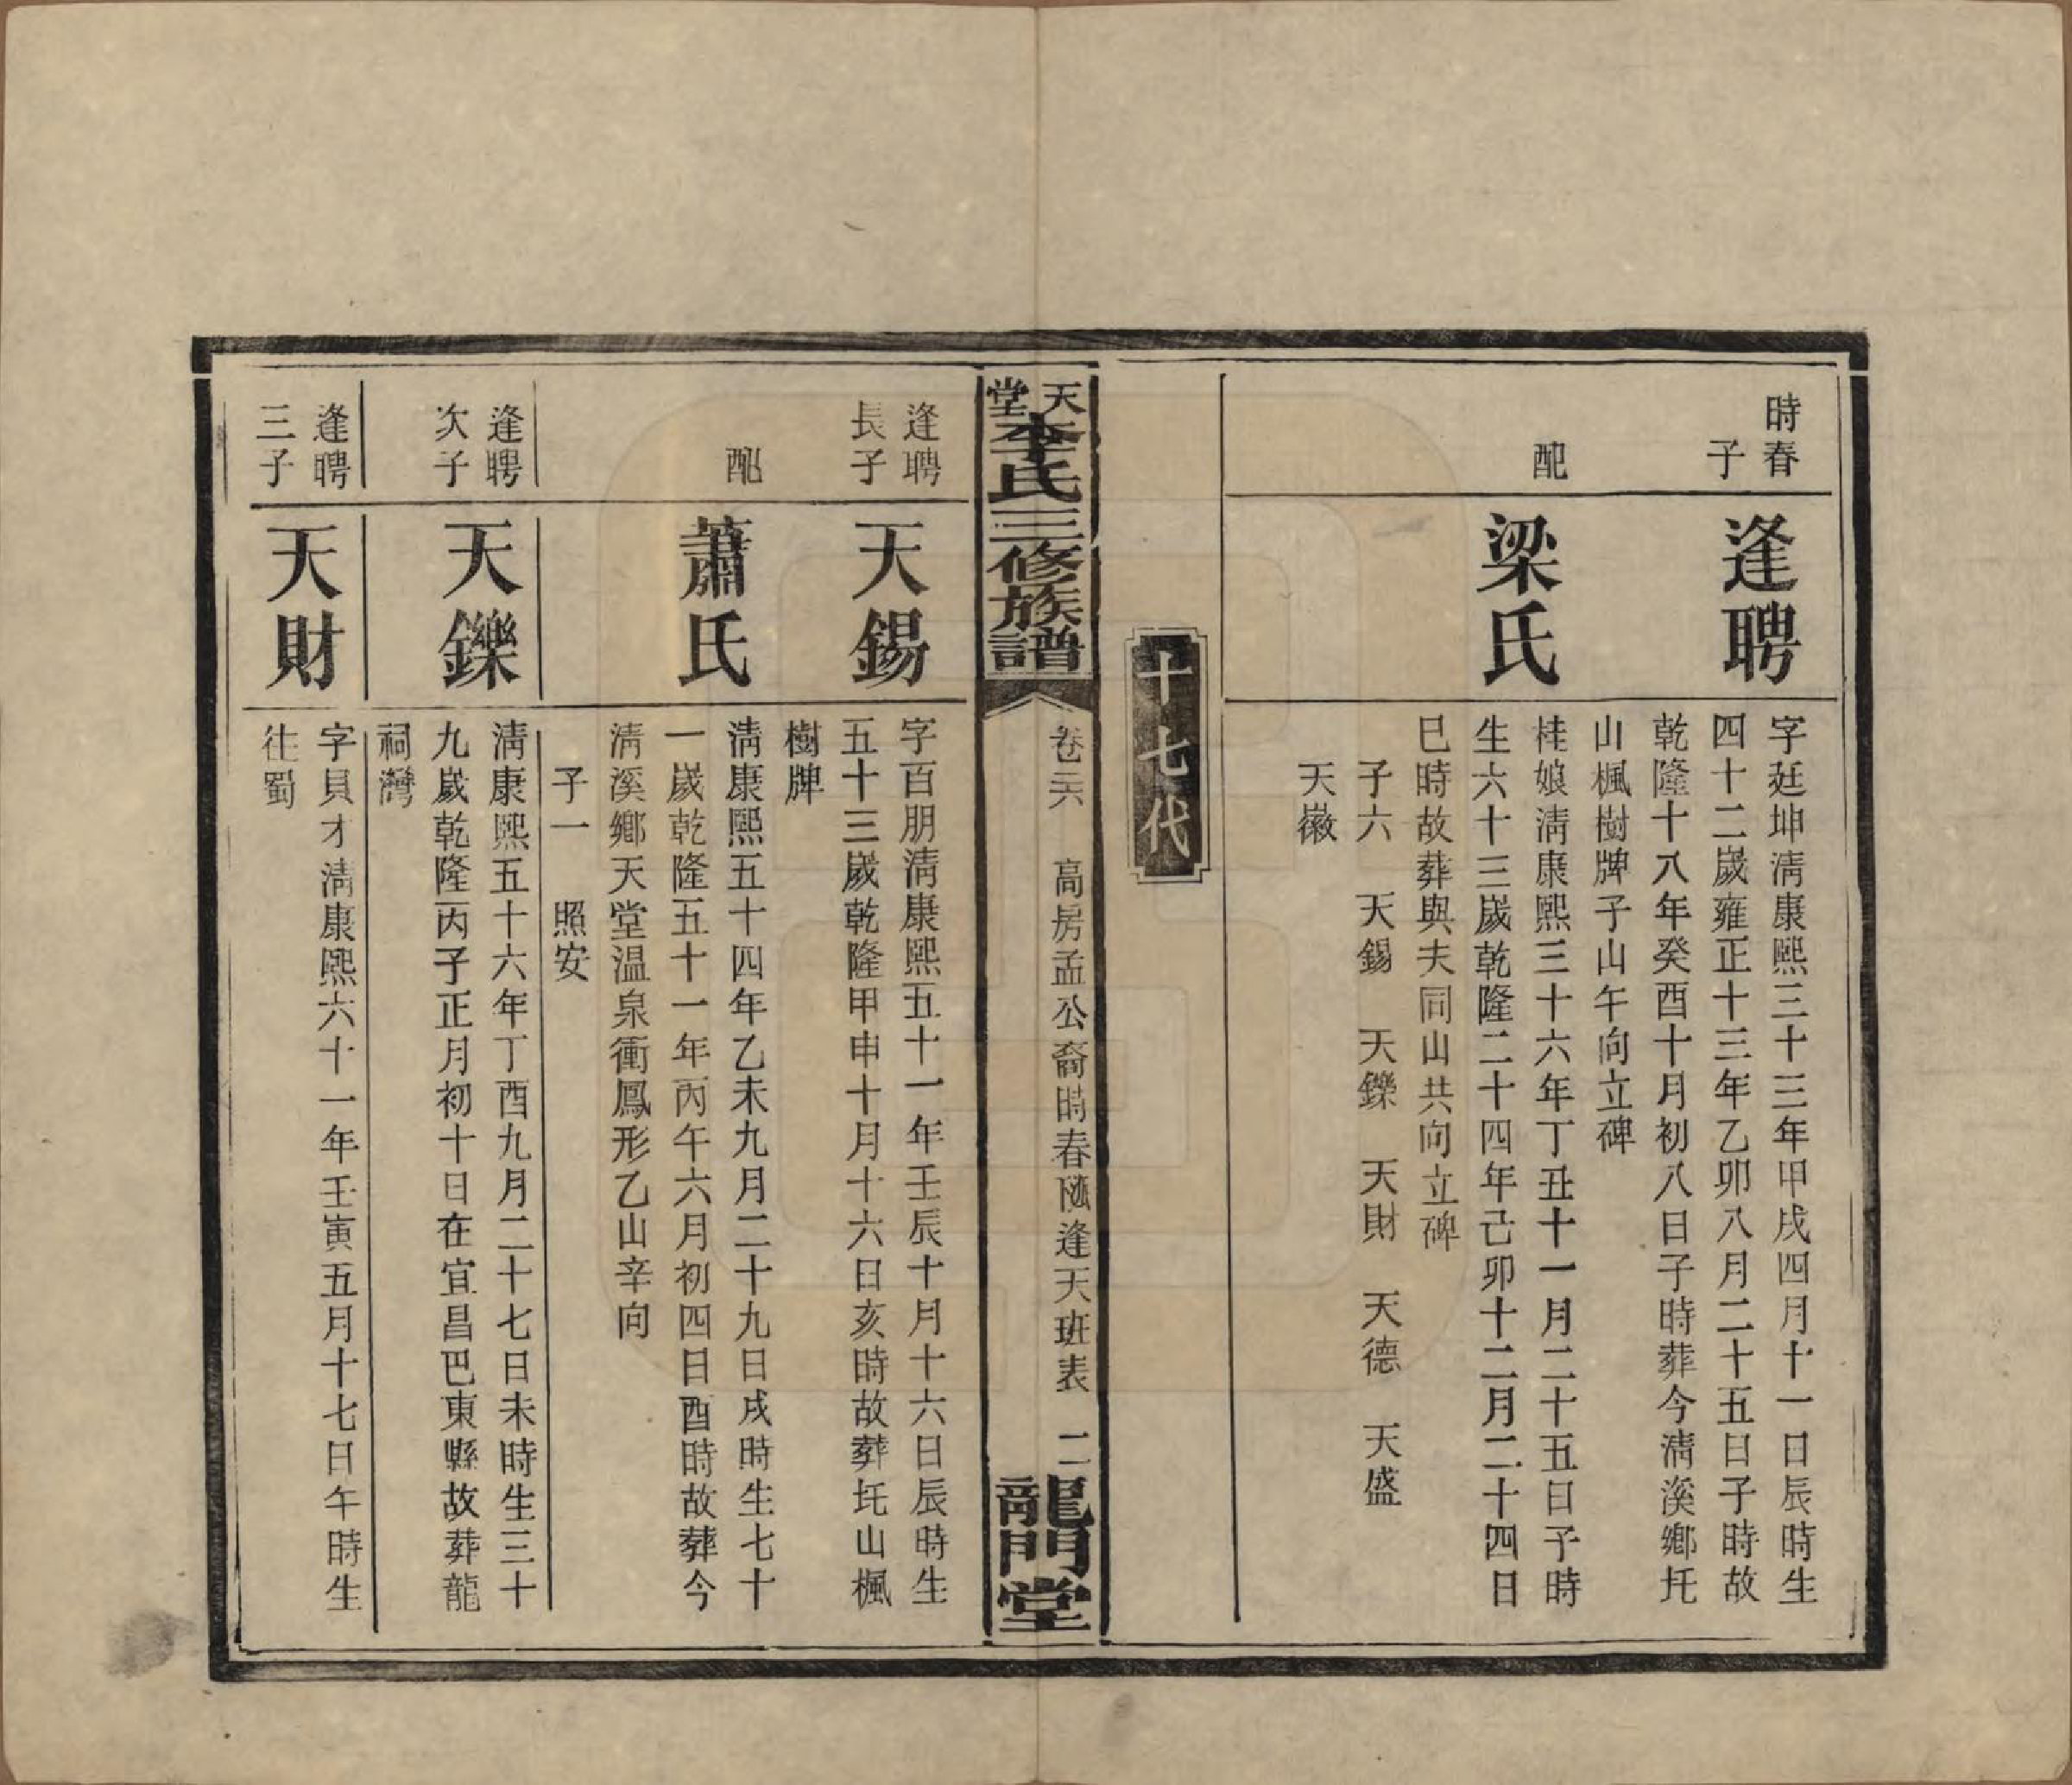 時春
子
逢聘
字廷坤淸康熙三十三年甲戌四月十一日辰時生
四十二嵗雍正十三年乙卯八月二十五日子時故
乾隆十八年癸酉十月初八日子時葬今淸溪鄕圫
山楓樹牌子山午向立碑
配
梁氏
桂娘淸康熙三十六年丁丑十一月二十五日子時
生六十三嵗乾隆二十四年己卯十二月二十四日
巳時故葬與夫同山共向立碑
子六　天錫　天鑠　天財　天德　天盛
天徽
十七代
天堂李氏三修族譜
卷二六　高房孟公裔時春傯逢天班表　二
龍門堂
逢聘
長子
天錫
字百朋淸康熙五十一年壬辰十月十六日辰時生
五十三嵗乾隆甲申十月十六日亥時故葬圫山楓
樹牌
配
蕭氏
淸康熙五十四年乙未九月二十九日戌時生七十
一嵗乾隆五十一年丙午六月初四日酉時故葬今
淸溪鄕天堂温泉衝鳳形乙山辛向
子一　照安
逢聘
次子
天鑠
淸康熙五十六年丁酉九月二十七日未時生三十
九嵗乾隆丙子正月初十日在宜昌巴東縣故葬龍
祠灣
逢聘
三子
天財
字貝才淸康熙六十一年壬寅五月十七日午時生
徃蜀